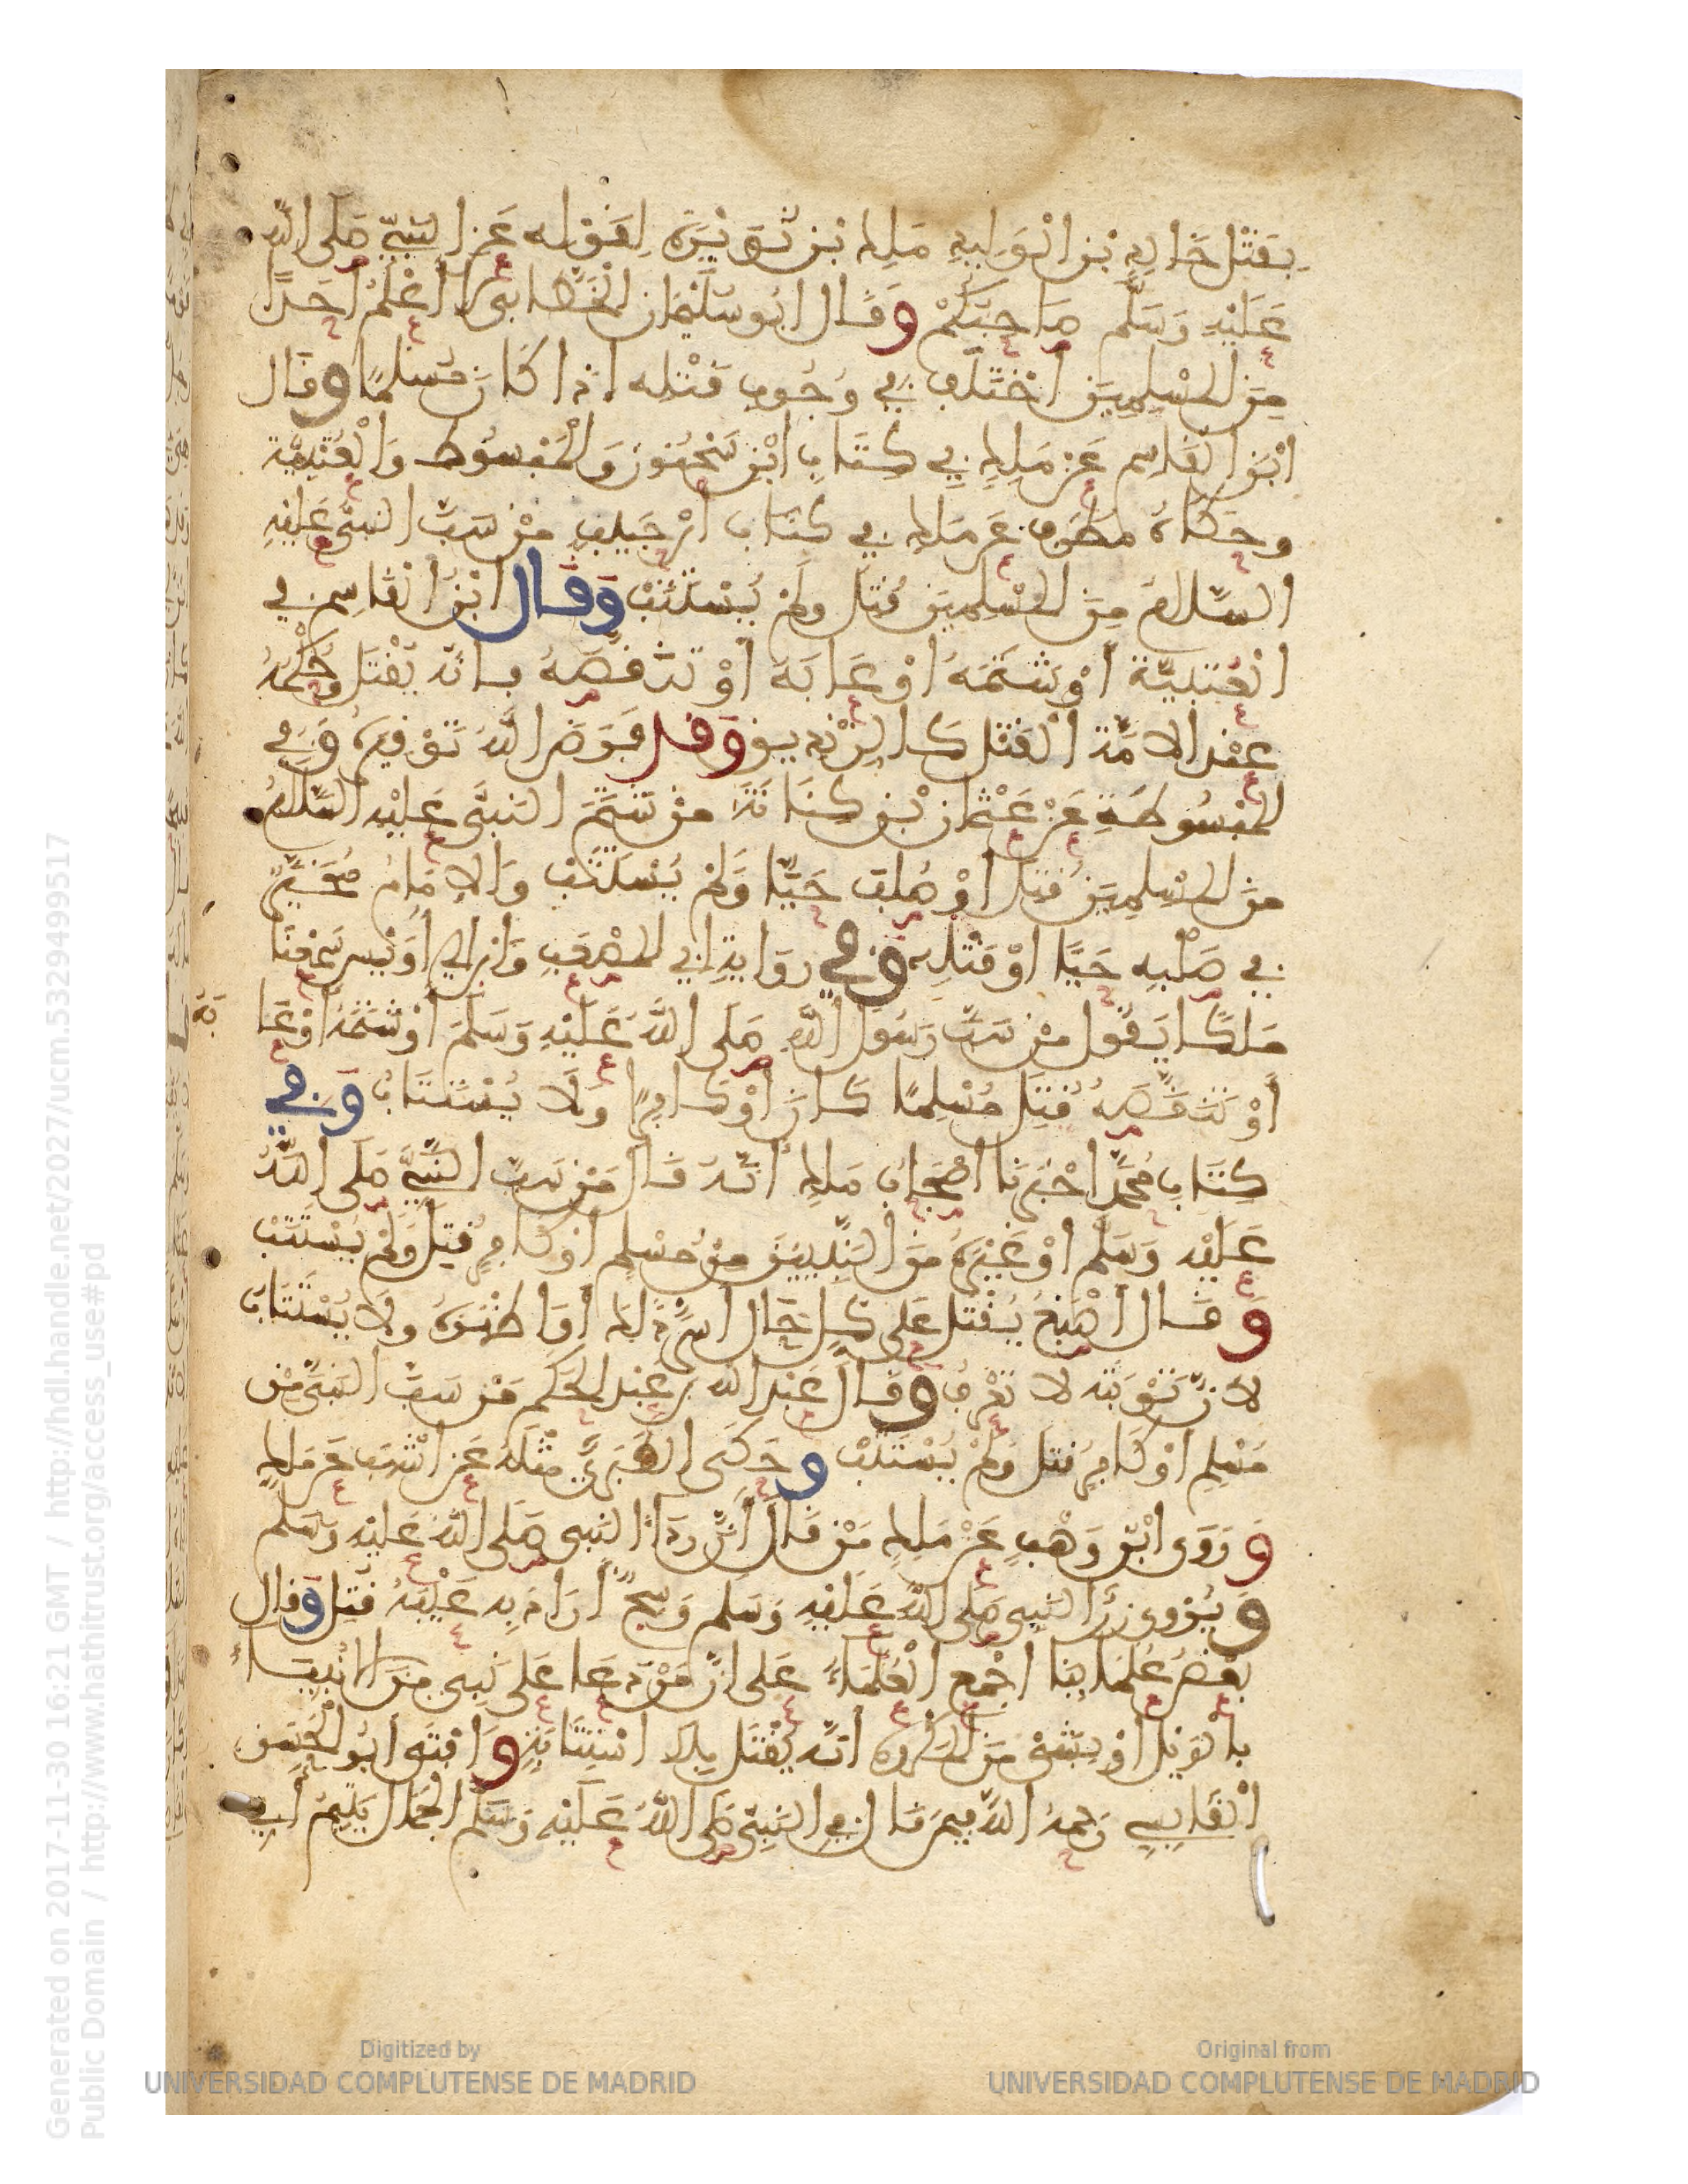 بقتل خالد بن الوليد ملك بن نويرة لقوله عن النبي صلى الله
عليه وسلم صاحبكم وقال ابو سليمان الخطابي لا أعلم احدا
من المسلمين اختلف في وجوب قتله اذا كان مسلما وقال
ابن القاسم عن ملك في كتاب ابن سحنون والمبسوط والعتبية
وحكاه مطرف عن ملك في كتاب ابن حبيب من سب النبي عليه
السلام من المسلمين قتل ولم يستتب وقال ابن القاسم في
العتبية أو شتمه او عابه أو تنقصه فانه يقتل وحكمه
عند الامة القتل كالزنديق وقد فرض الله توقيره وفي
المبسوطة عن عثمان بن كنانة من شتم النبي عليه السلام
من المسلمين قتل أو صلب حيا ولم يستتب والامام مخير
في صلبه حيا او قتله وفي رواية ابي المصعب وابن ابي أويس سمعنا
ملكا يقول من سب رسول الله صلى الله عليه وسلم أو شتمه او عا
بة
أو تنقصه قتل مسلما كان أو كافرا ولا يستتاب وفي
كتاب محمد اخبرنا اصحاب ملك أنه قال من سب النبي صلى الله
عليه وسلم او غيره من النبيين من مسلم أو كافر قتل ولم يستتب
وقال أصبغ يقتل على كل حال أسر ذلك أو اظهره ولا يستتاب
لان توبته لا تعرف وقال عبد الله بن عبد الحكم من سب النبي من
مسلم او كافر قتل ولم يستتب وحكى الطبري مثله عن اشهب عن ملك
وروى ابن وهب عن ملك من قال أن رداء النبي صلى الله عليه وسلم
ويروى زر النبي صلى الله عليه وسلم وسخ أراد به عيبه قتل وقال
بعض علمائنا اجمع العلماء على ان من دعا على نبي من الانبياء
بالويل او بشيء من المكروه أنه يقتل بلا استتابة وافتى ابو الحسن
القابسي رحمه الله فيمن قال في النبي صلى الله عليه وسلم الجمال يتيم أبي
Generated on 2017-11-30 16:21 GMT / http://hdl.handle.net/2027/ucm.5329499517
Public Domain / http://www.hathitrust.org/access_use#pd
Digitized by
UNIVERSIDAD COMPLUTENSE DE MADRID
Original from
UNIVERSIDAD COMPLUTENSE DE MADRID